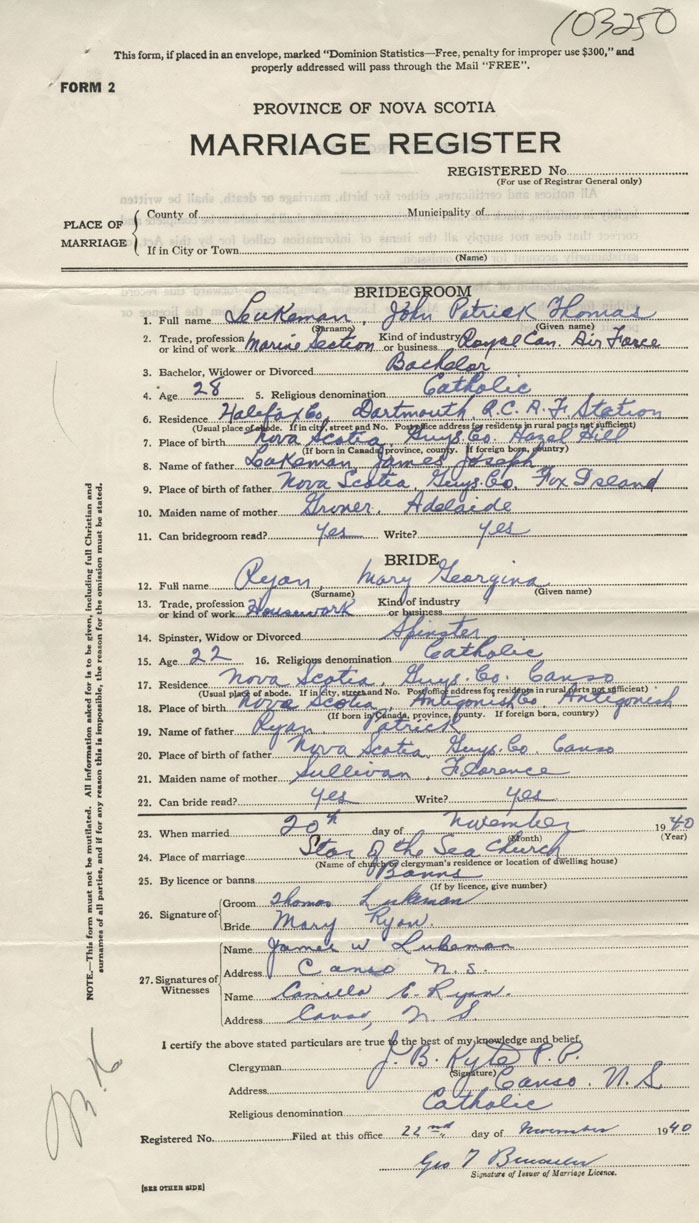 103250
This form, if placed in an envelope, marked "Dominion Statistics—Free, penalty for improper use $300," and
properly addressed will pass through the Mail "FREE".
FORM 2
PROVINCE OF NOVA SCOTIA
MARRIAGE REGISTER
REGISTERED No.
(For use of Registrar General only)
PLACE OF MARRIAGE
County of Municipality of
If in City or Town
(Name)
BRIDEGROOM
1. Full name Leukeman, John Patrick Thomas
(Surname) (Given name)
2. Trade, profession or kind of work Marine Section Kind of industry or business Royal Can. Air Force
3. Bachelor, Widower or Divorced Bachelor
4. Age 28 5. Religious denomination Catholic
6. Residence Halifax Co. Dartmouth R.C.A.F. Station
(Usual place of abode. If in city, street and No. Post office address for residents in rural parts not sufficient)
7. Place of birth Nova Scotia, Guys. Co. Hazel Hill
(If born in Canada, province, county. If foreign born, country)
8. Name of father Leukeman, James Joseph
9. Place of birth of father Nova Scotia, Guys. Co. Fox Island
10. Maiden name of mother Groner, Adelaide
11. Can bridegroom read? yes Write? yes
BRIDE
12. Full name Ryan, Mary Georgina
(Surname) (Given name)
13. Trade, profession or kind of work Housework Kind of industry or business
14. Spinster, Widow or Divorced Spinster
15. Age 22 16. Religious denomination Catholic
17. Residence Nova Scotia, Guys. Co. Canso
(Usual place of abode. If in city, street and No. Post office address for residents in rural parts not sufficient)
18. Place of birth Nova Scotia, Antigonish Co. Antigonish
(If born in Canada, province, county. If foreign born, country)
19. Name of father Ryan, Patrick
20. Place of birth of father Nova Scotia Guys. Co. Canso
21. Maiden name of mother Sullivan, Florence
22. Can bride read? yes Write? yes
23. When married 20th day of November 1940
(Month) (Year)
24. Place of marriage Star of the Sea Church
(Name of church, clergyman's residence or location of dwelling house)
25. By licence or banns Banns
(If by licence, give number)
26. Signature of
Groom Thomas Lukeman
Bride Mary Ryan.
27. Signatures of Witnesses
Name James W Lukeman
Address Canso N.S.
Name Camilla E. Ryan.
Address Canso, N S
I certify the above stated particulars are true to the best of my knowledge and belief,
Clergyman J. B. Kyte P.P.
(Signature)
Address Canso. N.S
Religious denomination Catholic
Registered No. Filed at this office 22nd day of November 1940
Geo T
Signature of Issuer of Marriage Licence.
[SEE OTHER SIDE]
NOTE.—This form must not be mutilated. All information asked for is to be given, including full Christian and
surnames of all parties, and if for any reason this is impossible, the reason for the omission must be stated.